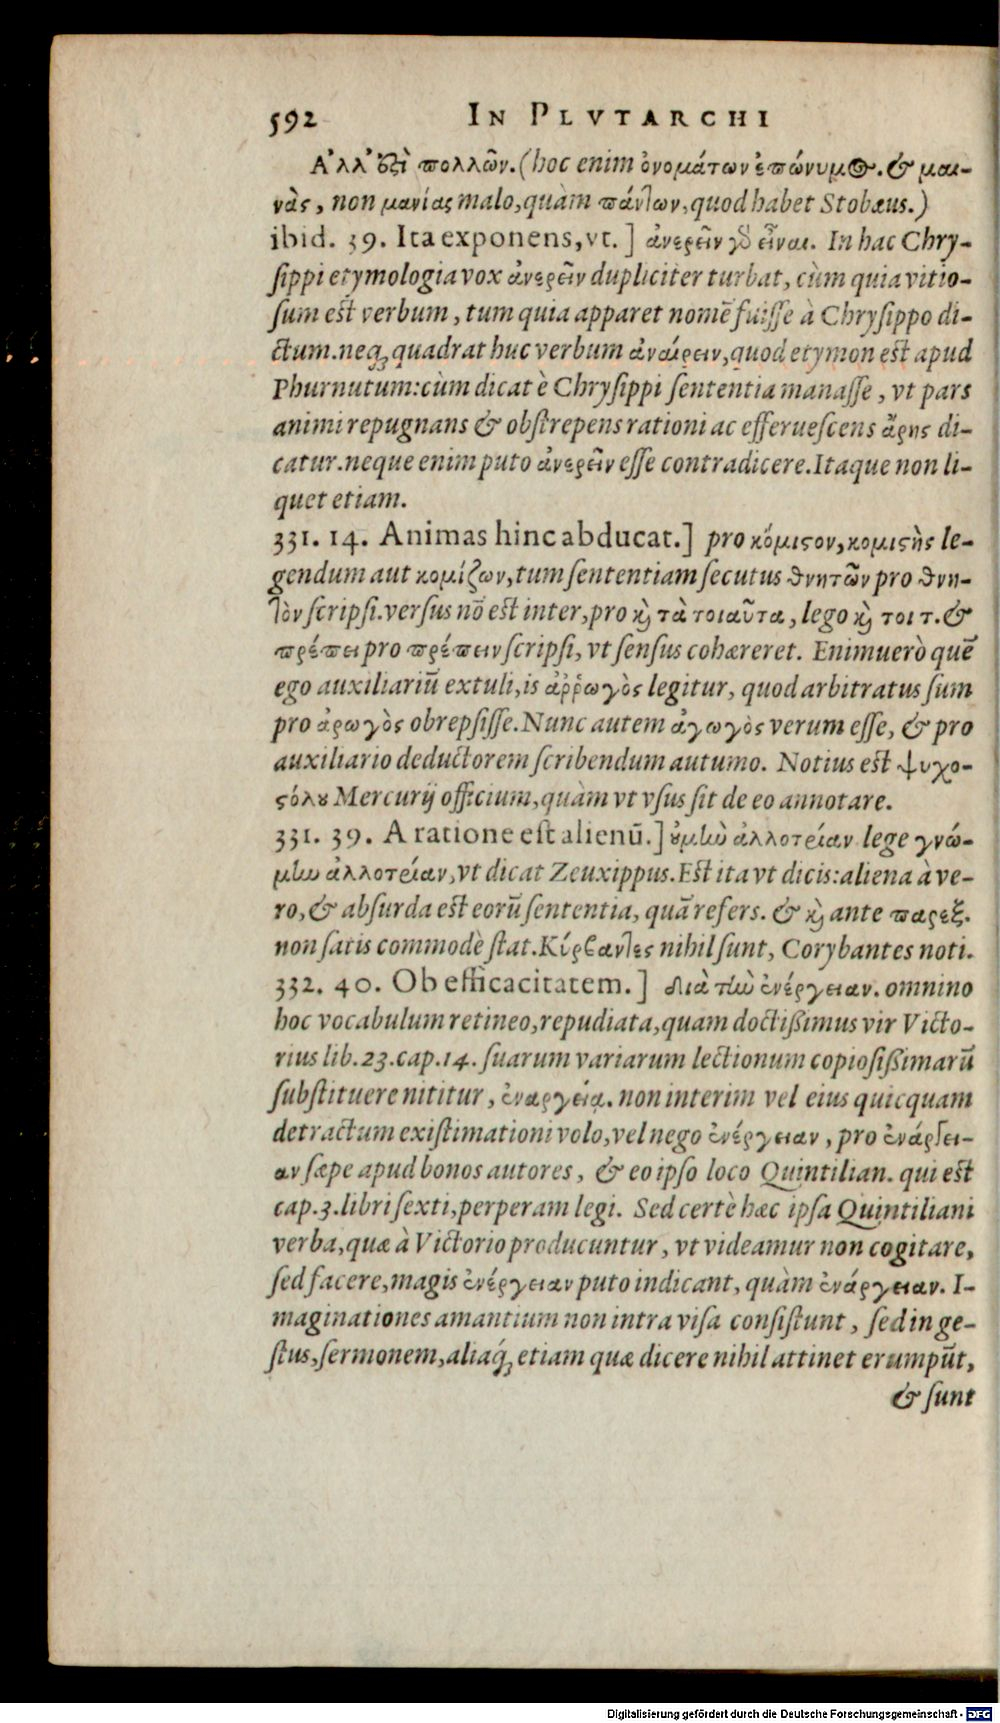 592 IN PLVTARCHI
Ἀλλ' ἐπὶ πολλῶν. (hoc enim ὀνομάτων ἐπώνυμος. & μαι-
νὰς, non μανίας malo, quàm πάντων, quod habet Stobæus.)
ibid. 39. Ita exponens, vt. ] ἀνερεῖν γὸ εἶναι. In hac Chry-
sippi etymologia vox ἀνερεῖν dupliciter turbat, cùm quia vitio-
sum est verbum, tum quia apparet nomē fuisse à Chrysippo di-
ctum. neq; quadrat huc verbum ἀναίρειν, quod etymon est apud
Phurnutum: cùm dicat è Chrysippi sententia manasse, vt pars
animi repugnans & obstrepens rationi ac efferuescens ἄρης di-
catur. neque enim puto ἀνερεῖν esse contradicere. Itaque non li-
quet etiam.
331. 14. Animas hinc abducat.] pro κόμιστον, κομιστὴς le-
gendum aut κομίζων, tum sententiam secutus θνητῶν pro θνη-
τὸν scripsi. versus nō est inter, pro καὶ τὰ τοιαῦτα, lego καὶ τοι τ. &
πρέπει pro πρέπειν scripsi, vt sensus cohæreret. Enimuerò quē
ego auxiliariū extuli, is ἀῤῥωγὸς legitur, quod arbitratus sum
pro ἀρωγὸς obrepsisse. Nunc autem ἀγωγὸς verum esse, & pro
auxiliario deductorem scribendum autumo. Notius est ψυχο-
στόλου Mercurij officium, quàm vt vsus sit de eo annotare.
331. 39. A ratione est alienū.] οὐμὴν ἀλλοτρίαν lege γνώ-
μην ἀλλοτρίαν, vt dicat Zeuxippus. Est ita vt dicis: aliena à ve-
ro, & absurda est eorū sententia, quā refers. & καὶ ante παρεξ.
non satis commodè stat. Κύρβαντες nihil sunt, Corybantes noti.
332. 40. Ob efficacitatem. ] διὰ τὴν ἐνέργειαν. omnino
hoc vocabulum retineo, repudiata, quam doctißimus vir Victo-
rius lib. 23. cap. 14. suarum variarum lectionum copiosißimarū
substituere nititur, ἐναργείᾳ. non interim vel eius quicquam
detractum existimationi volo, vel nego ἐνέργειαν, pro ἐνάργει-
αν sæpe apud bonos autores, & eo ipso loco Quintilian. qui est
cap. 3. libri sexti, perperam legi. Sed certè hæc ipsa Quintiliani
verba, quæ à Victorio producuntur, vt videamur non cogitare,
sed facere, magis ἐνέργειαν puto indicant, quàm ἐνάργειαν. I-
maginationes amantium non intra visa consistunt, sed in ge-
stus, sermonem, aliaq́; etiam quæ dicere nihil attinet erumpūt,
& sunt
Digitalisierung gefördert durch die Deutsche Forschungsgemeinschaft - DFG